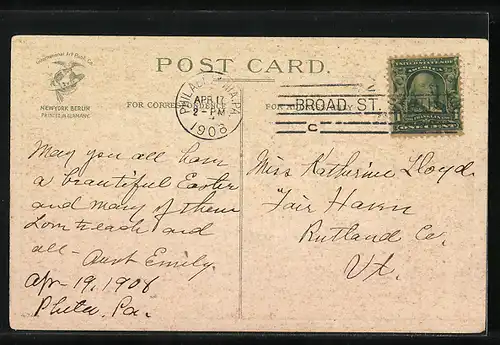 POST CARD.
International Art Publ. Co.
NEW YORK BERLIN
PRINTED IN GERMANY.
FOR CORRES
FOR A
PHILADELPHIA, PA.
APR 17
2-PM
1908
BROAD ST.
C
UNITED STATES OF
AMERICA
FRANKLIN
ONE CENT
May you all have
a beautiful Easter
and many of them
Love to each and
all - Aunt Emily.
Apr 19, 1908
Phila, Pa.
Miss Katherine Lloyd.
Fair Haven
Rutland Co.
Vt.